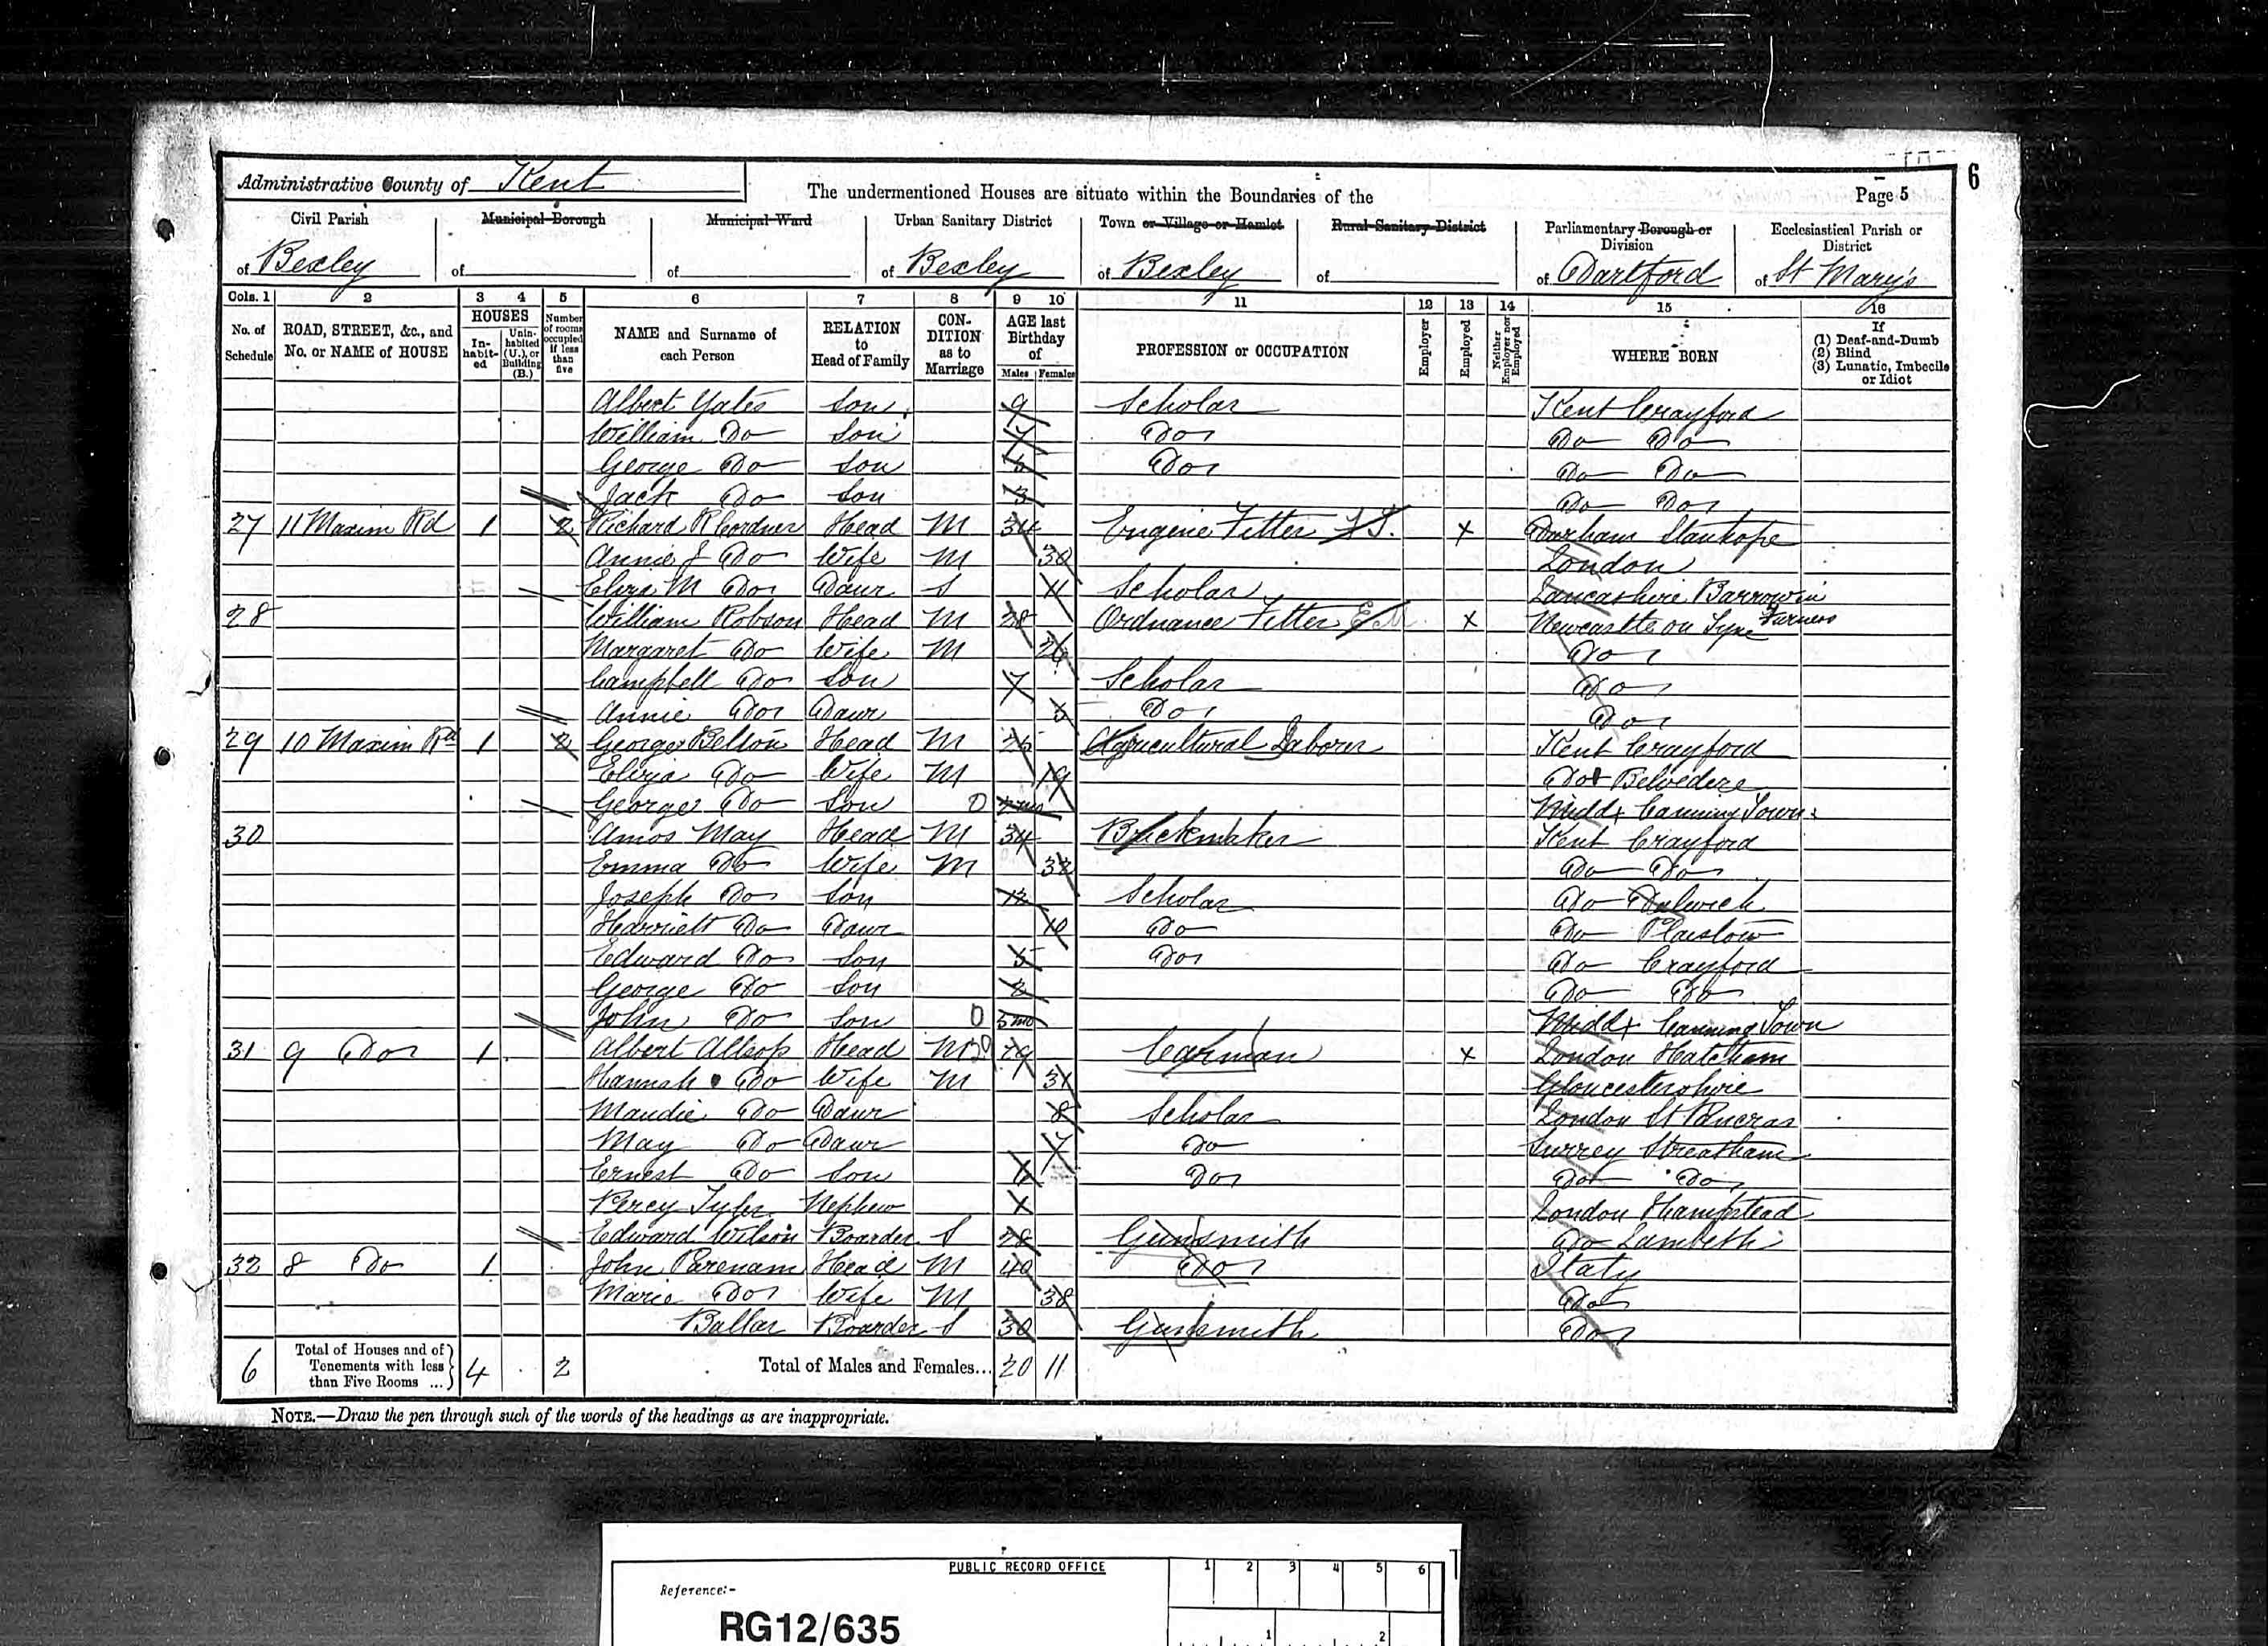 6
Administrative County of Kent
The undermentioned Houses are situate within the Boundaries of the
Page 5
Civil Parish of Bexley
Municipal Borough of
Municipal Ward of
Urban Sanitary District of Bexley
Town or Village or Hamlet of Bexley
Rural Sanitary District of
Parliamentary Borough or Division of Dartford
Ecclesiastical Parish or District of St Mary's
Cols. 1 2 3 4 5 6 7 8 9 10 11 12 13 14 15 16
No. of Schedule
ROAD, STREET, &c., and No. or NAME of HOUSE
HOUSES
In-habit-ed
Unin-habited (U.), or Building (B.)
Number of rooms occupied if less than five
NAME and Surname of each Person
RELATION to Head of Family
CON-DITION as to Marriage
AGE last Birthday of
Males Females
PROFESSION or OCCUPATION
Employer
Employed
Neither Employer nor Employed
WHERE BORN
If (1) Deaf-and-Dumb (2) Blind (3) Lunatic, Imbecile or Idiot
Albert Yates Son 9 Scholar Kent Crayford
William Do Son 7 Do Do Do
George Do Son Do Do Do
Jack Do Son 3 Do Do
27 11 Maxim Rd 1 2 Richard R Cordner Head M 34 Engine Fitter x Durham Stanhope
Annie J Do Wife M 30 London
Eliza M Do Daur S 11 Scholar Lancashire Barrow in Furness
28 William Robson Head M 28 Ordnance Fitter x Newcastle on Tyne
Margaret Do Wife M 26 Do
Campbell Do Son 7 Scholar Do
Annie Do Daur Do Do
29 10 Maxim Rd 1 2 George Belton Head M 25 Agricultural Laborer Kent Crayford
Eliza Do Wife M 19 Do Belvedere
George Do Son 0 2mo Middx Canning Town
30 Amos May Head M 34 Brickmaker Kent Crayford
Emma Do Wife M 32 Do Do
Joseph Do Son 12 Scholar Do Dulwich
Harriett Do Daur 10 Do Do Plaistow
Edward Do Son 5 Do Do Crayford
George Do Son 2 Do Do
John Do Son 0 5mo Middx Canning Town
31 9 Do 1 Albert Allsop Head M 30 29 Carman x London Hatcham
Hannah Do Wife M 31 Gloucestershire
Maudie Do Daur 8 Scholar London St Pancras
May Do Daur 7 Do Surrey Streatham
Ernest Do Son Do Do Do
Percy Tyler Nephew London Hampstead
Edward Wilson Boarder S 28 Gunsmith Do Lambeth
32 8 Do 1 John Parenam Head M 40 Do Italy
Marie Do Wife M 38 Do
Ballar Boarder S 30 Gunsmith Do
6 Total of Houses and of Tenements with less than Five Rooms ... 4 2 Total of Males and Females... 20 11
NOTE.—Draw the pen through such of the words of the headings as are inappropriate.
PUBLIC RECORD OFFICE 1 2 3 4 5 6
Reference:-
RG12/635
1 2